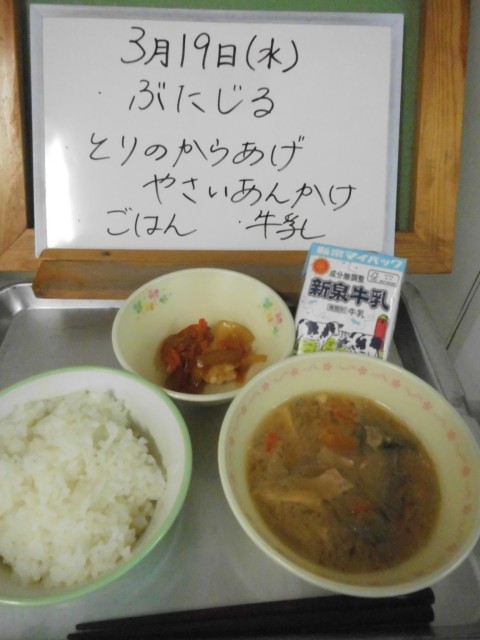 3月19日(水)
ぶたじる
とりのからあげ
やさいあんかけ
ごはん ・牛乳
新泉マイパック
成分無調整
新泉牛乳
牛乳